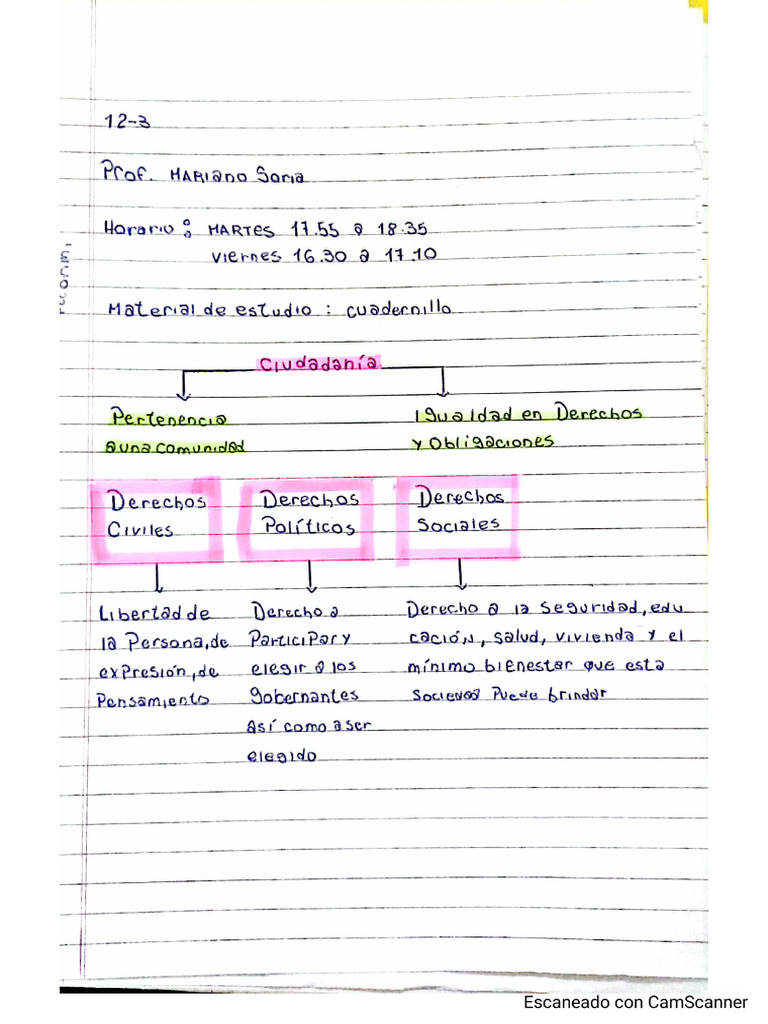 12-3
Prof. Mariano Soria
Horario: Martes 17.55 a 18.35
Viernes 16.30 a 17.10
Material de estudio: cuadernillo
Ciudadanía
Pertenencia
a una comunidad
Igualdad en Derechos
y Obligaciones
Derechos
Civiles
Derechos
Políticos
Derechos
Sociales
Libertad de
la Persona, de
expresión, de
Pensamiento
Derecho a
Participar y
elegir a los
gobernantes
Así como a ser
elegido
Derecho a la seguridad, edu
cación, salud, vivienda y el
mínimo bienestar que esta
Sociedad Puede brindar
Escaneado con CamScanner